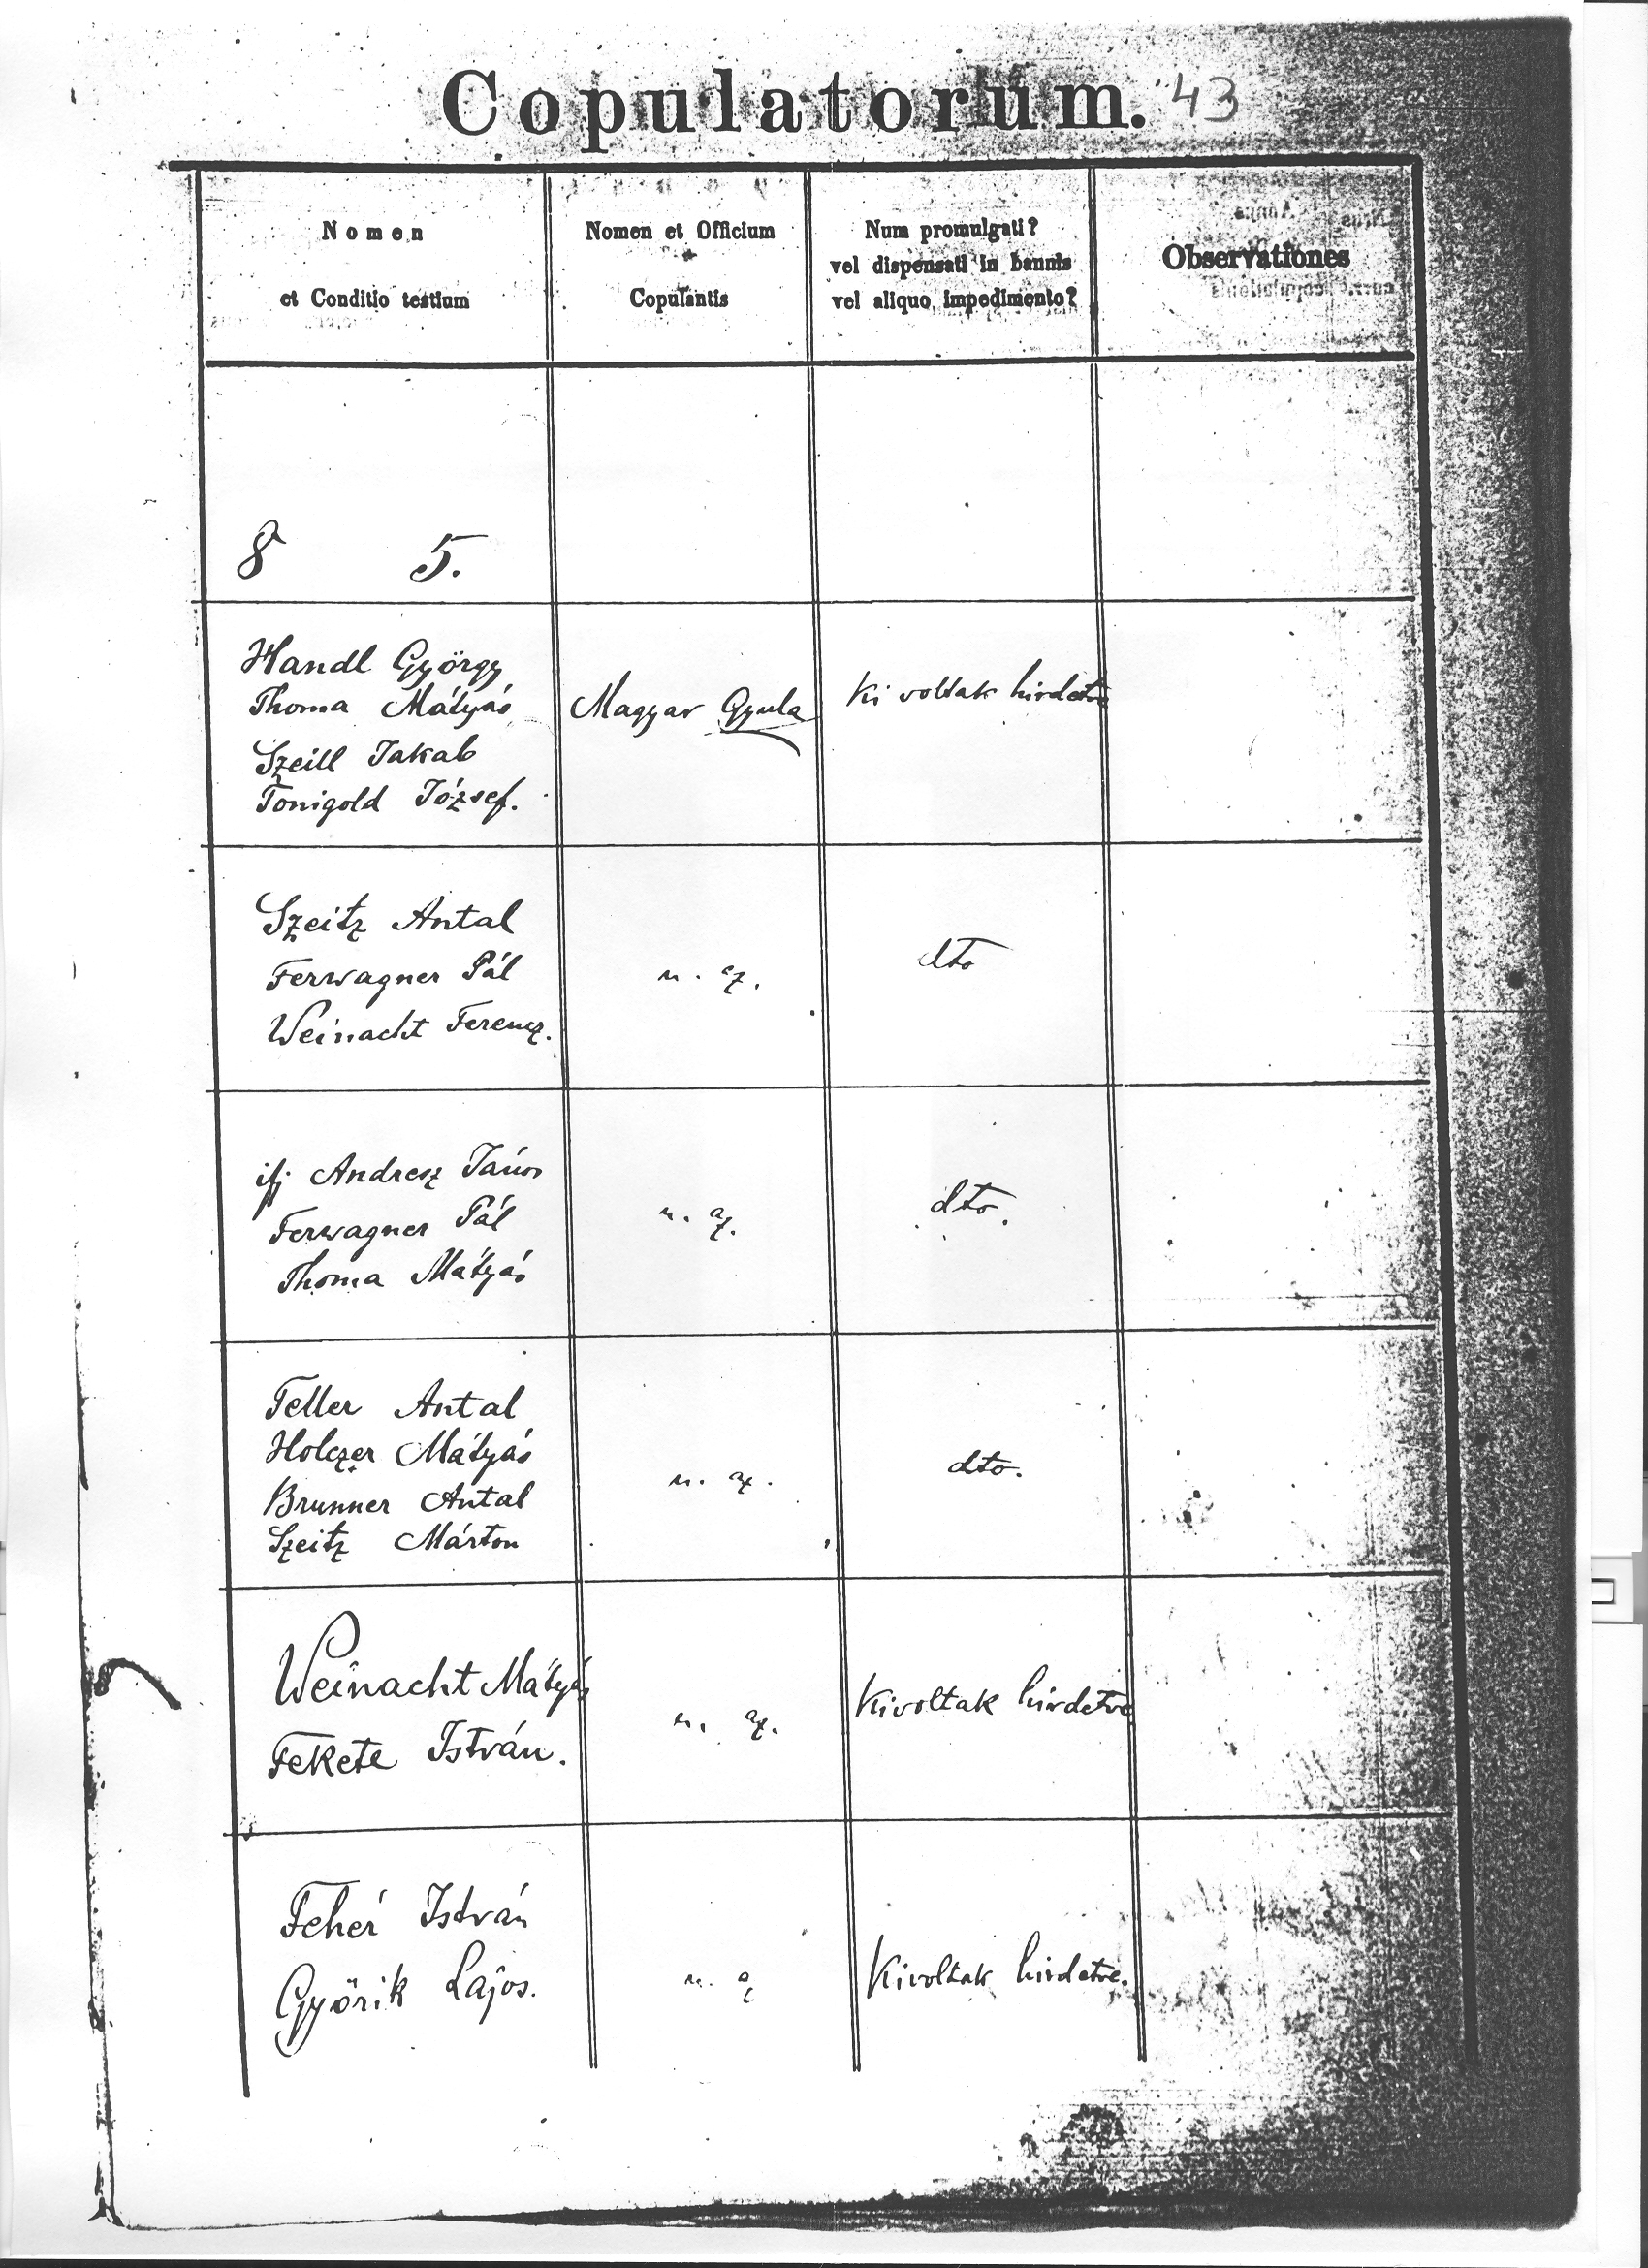 Copulatorum. 43
Nomen
et Conditio testium
Nomen et Officium
Copulantis
Num promulgati?
vel dispensati in bannis
vel aliquo impedimento?
Observationes
8 5.
Handl György
Thoma Mátyás
Szeill Jakab
Tonigold József.
Magyar Gyula
Ki voltak hirdetve
Szeitz Antal
Ferwagner Pál
Weinacht Ferencz.
u. az.
dto
ifj Andresz János
Ferwagner Pál
Thoma Mátyás
u. az.
dto.
Teller Antal
Holczer Mátyás
Brunner Antal
Szeitz Márton
u. az.
dto.
Weinacht Mátyás
Fekete István.
u. az.
Kivoltak hirdetve
Fehér István
Györik Lajos.
u. a
Kivoltak hirdetve.